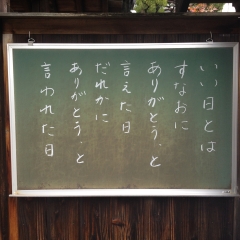 いい日とは
すなおに
ありがとう、と
言えた日
だれかに
ありがとう、と
言われた日